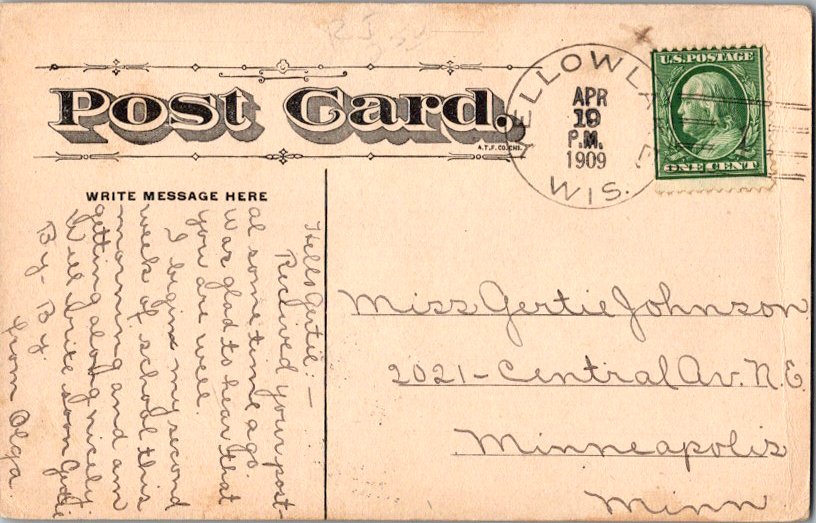 Post Card.
A.T.F. CO. CHI.
WRITE MESSAGE HERE
ELLOWLA
APR
19
P.M.
1909
WIS.
U.S. POSTAGE
ONE CENT
Hello Gertie:—
Recieved your post-
al some time ago.
Was glad to hear that
you are well.
I begins my second
week of school this
morning and am
getting along nicely.
Will write soon Gertie
By-By
from Olga
Miss Gertie Johnson
2021-Central Av. N.E.
Minneapolis
Minn